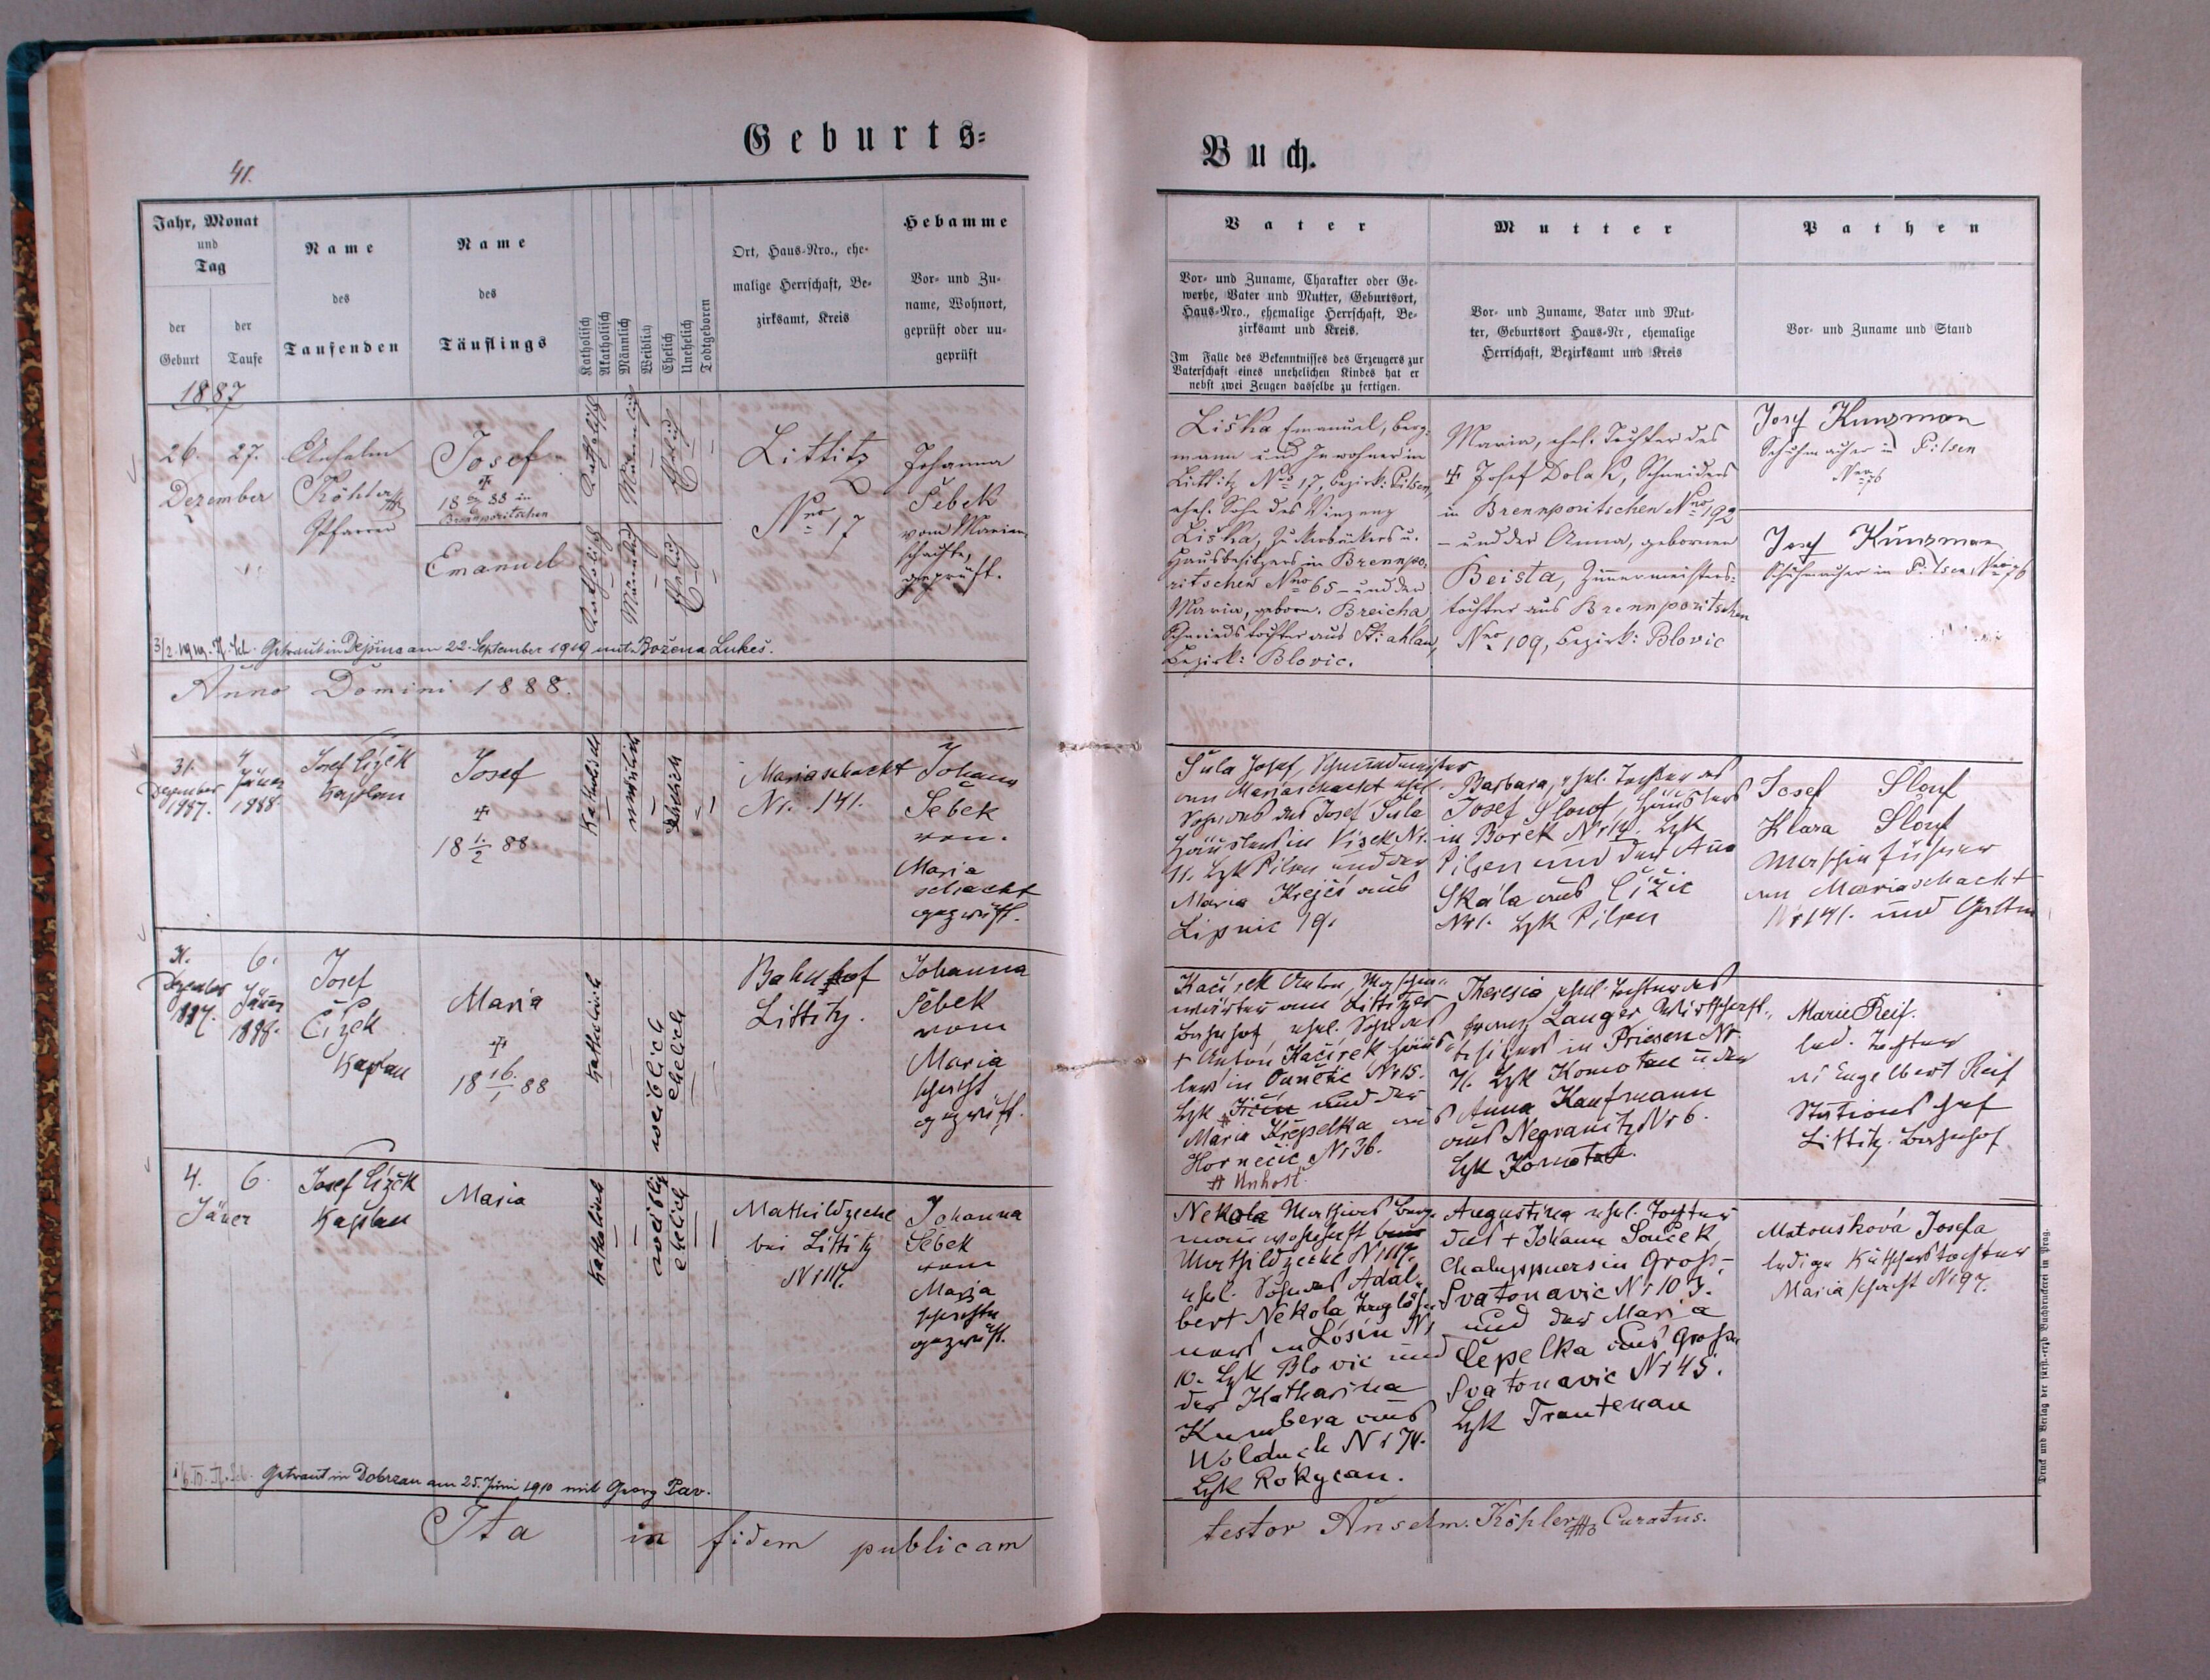 Geburts=
Buch.
41.
Jahr, Monat
und
Tag
der
Geburt
der
Taufe
Name
des
Taufenden
Name
des
Täuflings
Katholisch
Akatholisch
Männlich
Weiblich
Ehelich
Unehelich
Todtgeboren
Ort, Haus-Nro., ehe-
malige Herrschaft, Be-
zirksamt, Kreis
Hebamme
Vor- und Zu-
name, Wohnort,
geprüft oder un-
geprüft
Vater
Vor- und Zuname, Charakter oder Ge-
werbe, Vater und Mutter, Geburtsort,
Haus-Nro., ehemalige Herrschaft, Be-
zirksamt und Kreis.
Im Falle des Bekenntnisses des Erzeugers zur
Vaterschaft eines unehelichen Kindes hat er
nebst zwei Zeugen dasselbe zu fertigen.
Mutter
Vor- und Zuname, Vater und Mut-
ter, Geburtsort Haus-Nr, ehemalige
Herrschaft, Bezirksamt und Kreis
Pathen
Vor- und Zuname und Stand
1887
26. 27.
Dezember
Anselm
Köhler
Pfarrer
Josef
18 88 in
Brennporitschen
Emanuel
Katholisch
Männlich
Ehelich
Katholisch
Männlich
Ehelich
Littitz
Nro 17
Johanna
Šebek
vom Marien-
schachte,
geprüft.
Liška Emanuel, Berg-
mann und Inwohner in
Littitz Nro 17, Bezirk: Pilsen,
ehel. Sohn des Vinzenz
Liška, Zuckerbäckers u.
Hausbesitzers in Brennpo-
ritschen Nro 65 – und der
Maria, geborn. Breicha,
Schmiedstochter aus Stiahlau,
Bezirk: Blovic.
Maria, ehel. Tochter des
† Josef Dolak, Schneiders
in Brennporitschen Nro 192
– und der Anna, gebornen
Beista, Zimmermeisters-
tochter aus Brennporitschen
Nro 109, Bezirk: Blovic
Josef Kunzman
Schuhmacher in Pilsen
Josef Kunzman
Schuhmacher in Pilsen
Getraut in Dejšina am 22. September 1919 mit Božena Lukeš.
Anno Domini 1888.
31.
Dezember
1887.
4.
Jäner
1888
Josef Čížek
Kaplan
Josef
†
18 1./2 88
Katholisch
männlich
ehelich
Mariaschacht
Nr. 141.
Johana
Šebek
vom
Maria
schacht
geprüft.
Šula Josef, Schmiedmeister
am Mariaschacht ehel.
Sohn des Josef Šula
Häuslers in Visek Nr.
11. Bzk Pilsen und der
Maria Krejčí aus
Lipnic 19.
Barbara, ehel. Tochter des
Josef Slouf, Häuslers
in Borek Nr 14. Bzk
Pilsen und der Ana
Skála aus Čižic
Nr 1. Bzk Pilsen
Josef Šlouf
Klara Šlouf
Maschinführer
am Mariaschacht
Nr 141. und Gattin
31.
Dezember
1887.
6.
Jäner
1888.
Josef
Čížek
Kaplan
Maria
†
18 16./1 88
Katholisch
weiblich
ehelich
Bahnhof
Littitz.
Johanna
Šebek
vom
Maria
schacht
geprüft.
Kačírek Anton, Maschin-
wärter am Littitzer
Bahnhof, ehel. Sohn des
† Anton Kačírek Häus-
lers in Nr 15.
Bzk Jičín und der
Maria Křepelka aus
Hornečic Nr 36.
# Unhošt.
Theresia, ehel. Tochter des
Franz Langer Wirtschaft-
besitzers in Priesen Nr.
71. Bzk Komotau u. der
Anna Kaufmann
aus Negranitz Nr 6.
Bzk Komotau.
Marie Reif.
led. Tochter
des Engelbert Reif
Stations chef
Littitz Bahnhof
4. 6.
Jäner
Josef Čížek
Kaplan
Maria
Katholisch
weiblich
ehelich
Mathildzeche
bei Littitz
Nr 117.
Johanna
Šebek
vom
Maria
schachte
geprüft.
Nekola Mathias Berg-
man wohnhaft
Mathildzeche Nr 117.
ehel. Sohn des Adal-
bert Nekola Taglöh-
ners in Losin Nr
10. Bzk Blovic und
der Katharina
Kumbera aus
Wolduch Nr 74.
Bzk Rokycan.
Augustina ehel. Tochter
des † Johann Souček,
Chaluppners in Gross-
Svatonavic Nr 103.
und der Maria
Čepelka aus Gross
Svatonavic Nr 45.
Bzk Trautenau
Matoušková Josefa
ledige Kutscherstochter
Maria schacht Nr 97.
Getraut in Dobrzan am 25. Juni 1910 mit Georg Pav.
Ita in fidem publicam
testor Anselm. Köhler Curatus.
Druck und Verlag der fürst.-erzb. Buchdruckerei in Prag.